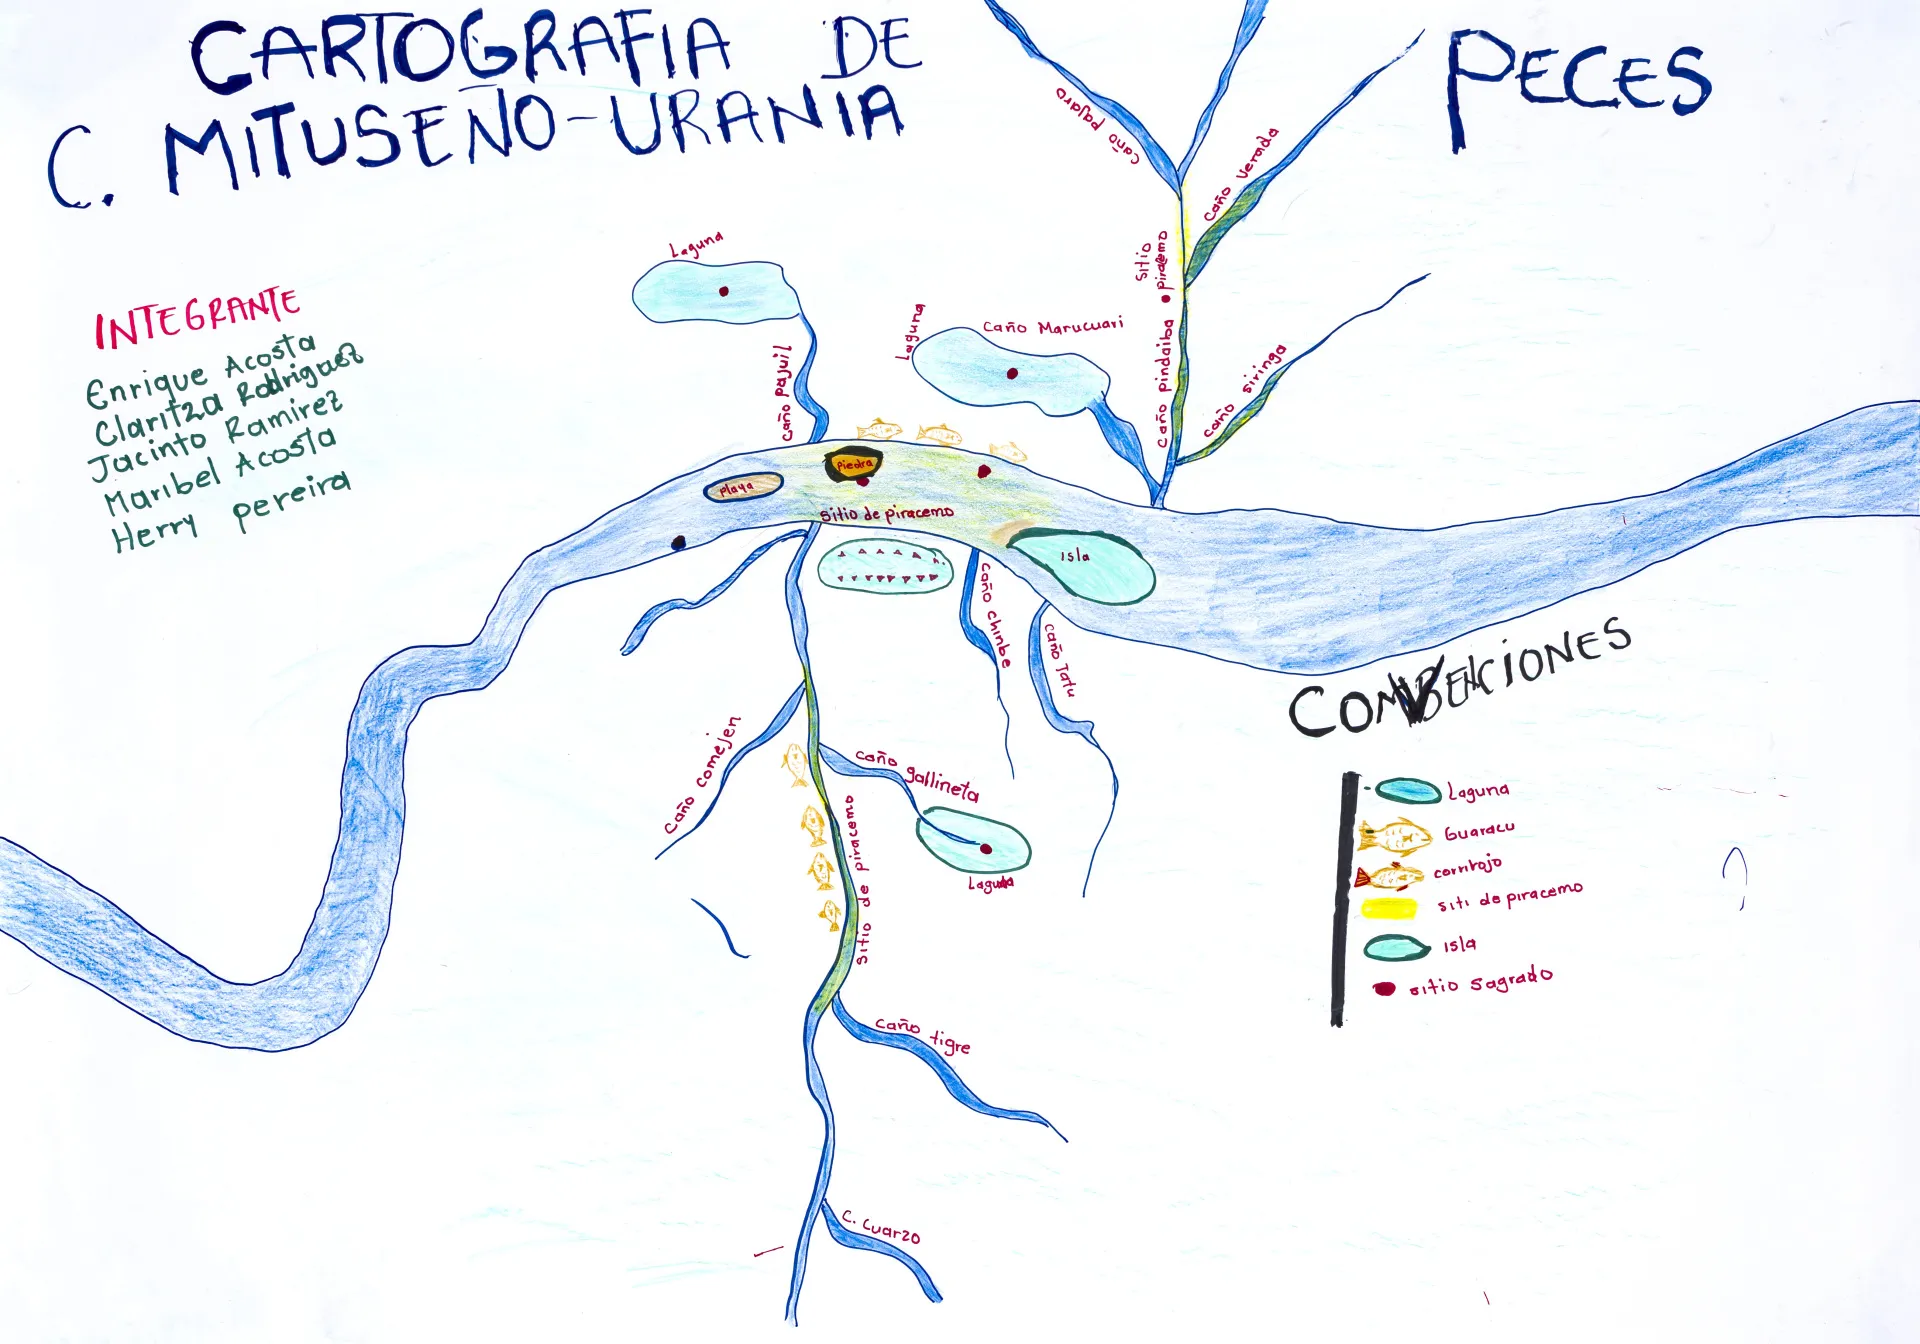 CARTOGRAFIA DE
C. MITUSEÑO-URANIA
PECES
INTEGRANTE
Enrique Acosta
Claritza Rodriguez
Jacinto Ramirez
Maribel Acosta
Herry pereira
Laguna
caño pajuil
Laguna
Caño Marucuari
caño pajaro
caño Verada
sitio
piracemo
caño pindaiba
caño siringa
Piedra
Playa
sitio de piracemo
Isla
caño chinbe
caño Tatu
caño comejen
caño gallineta
Laguna
sitio de piracemo
caño tigre
C. Cuarzo
CONVENCIONES
Laguna
Guaracu
corrirojo
siti de piracemo
Isla
sitio sagrado